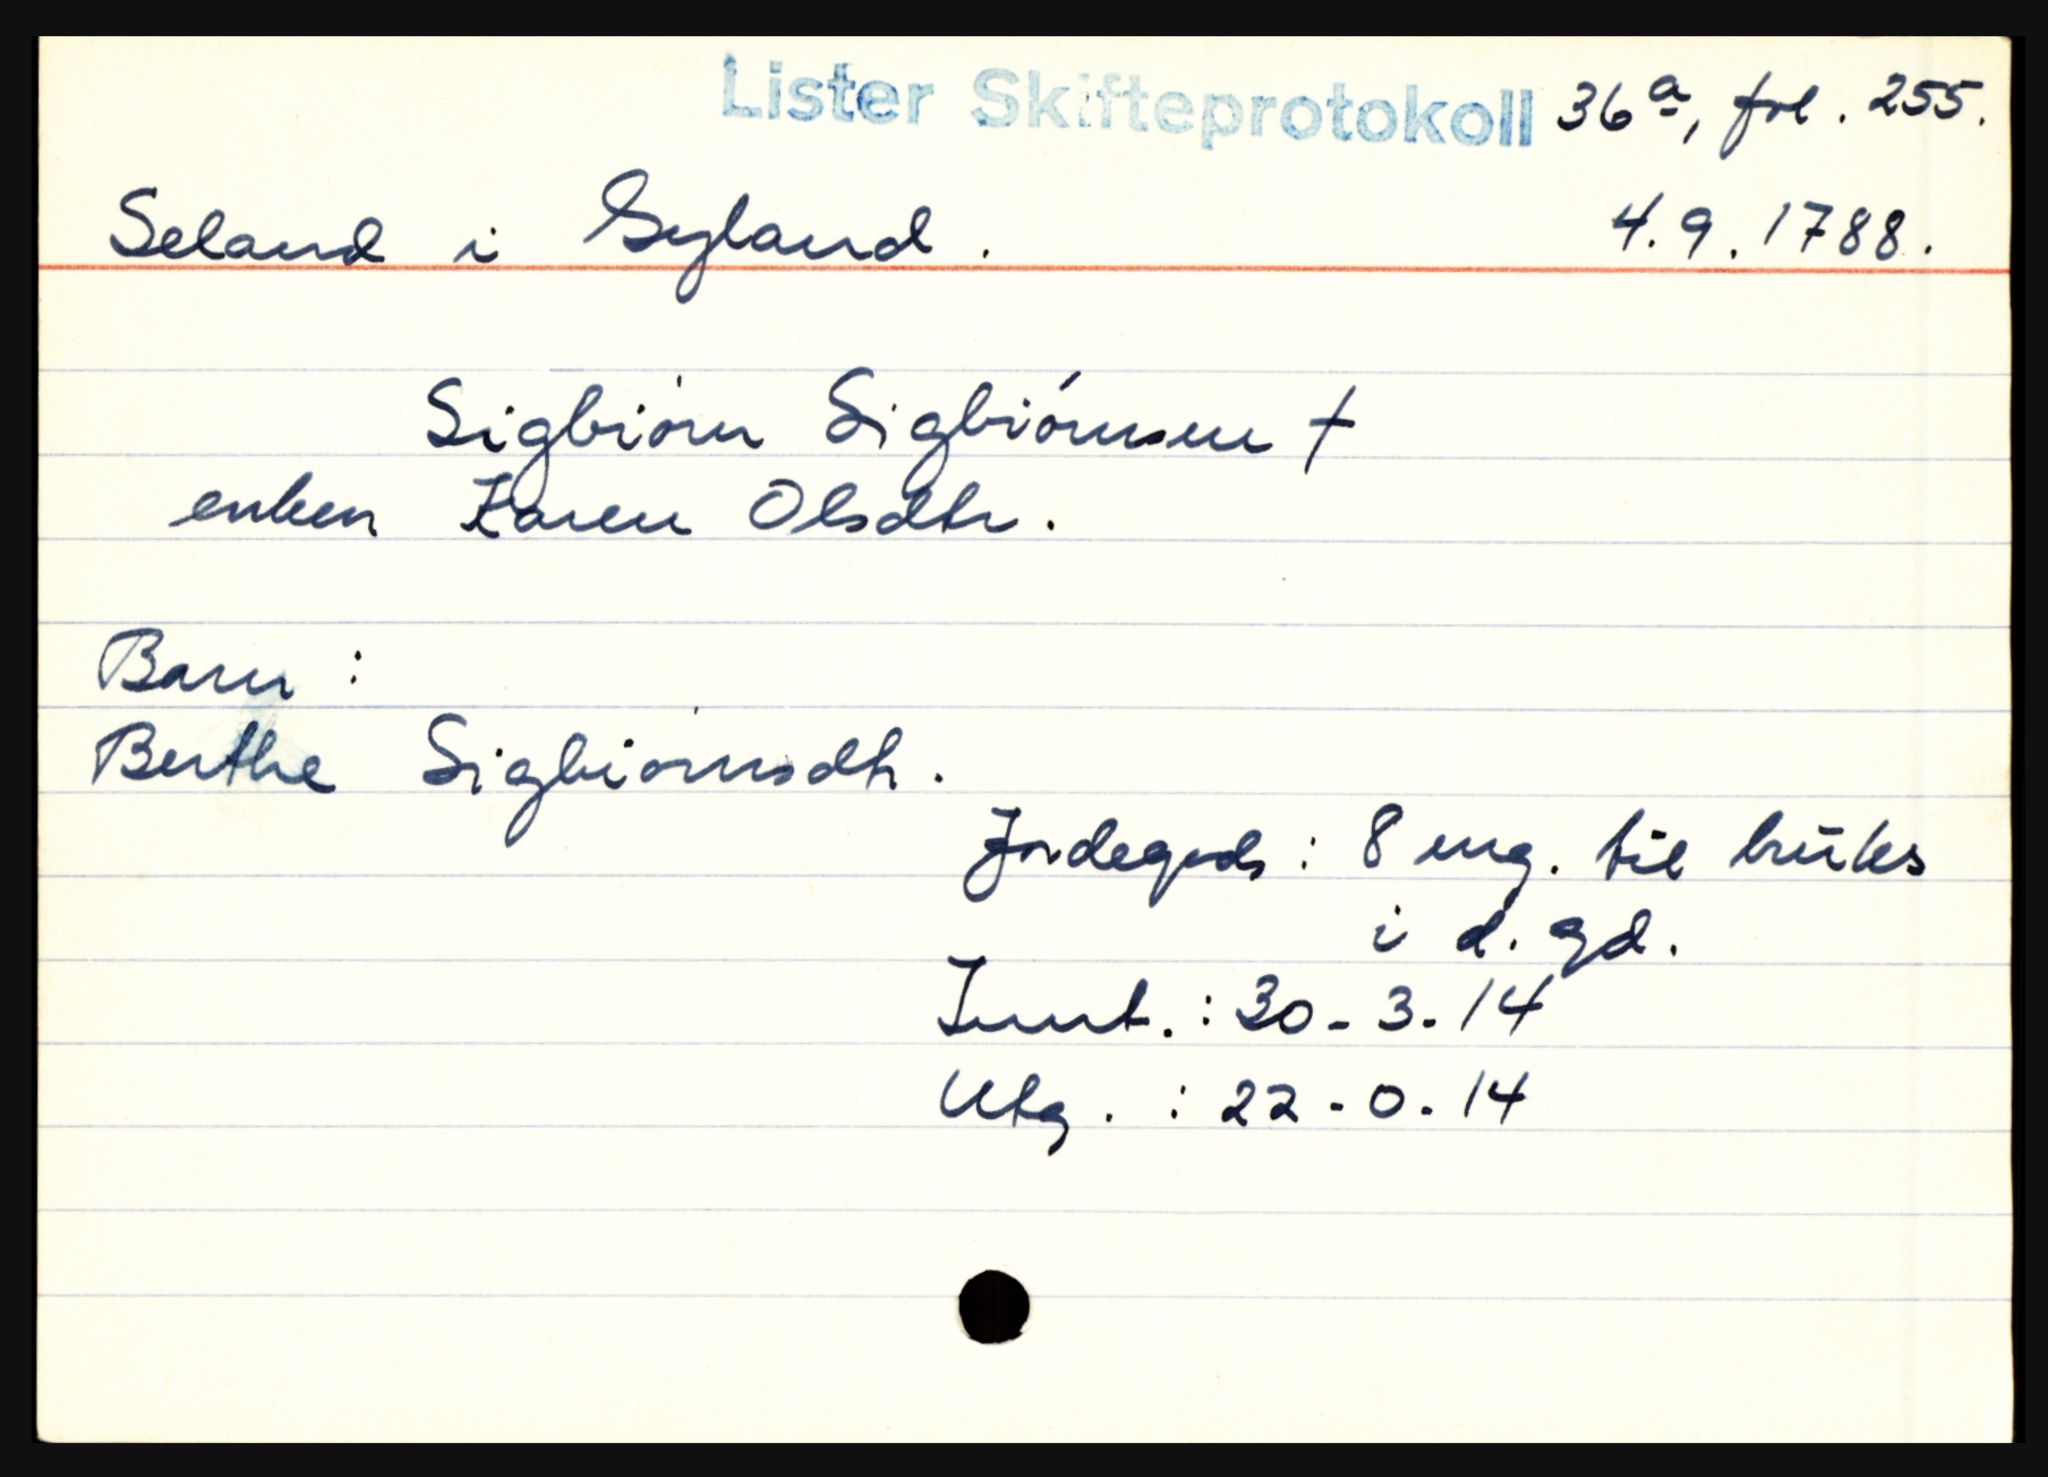 Lister Skifteprotokoll 36a, fol. 255.
Seland i Gyland. 4.9.1788.
Sigbiørn Sigbiørnsen †
enken Karen Olsdtr.
Barn :
Berthe Sigbiørnsdtr.
Jordegods : 8 mg. til brüks
i d. gd.
Innt. : 30 - 3 - 14
Utg. : 22 - 0 - 14